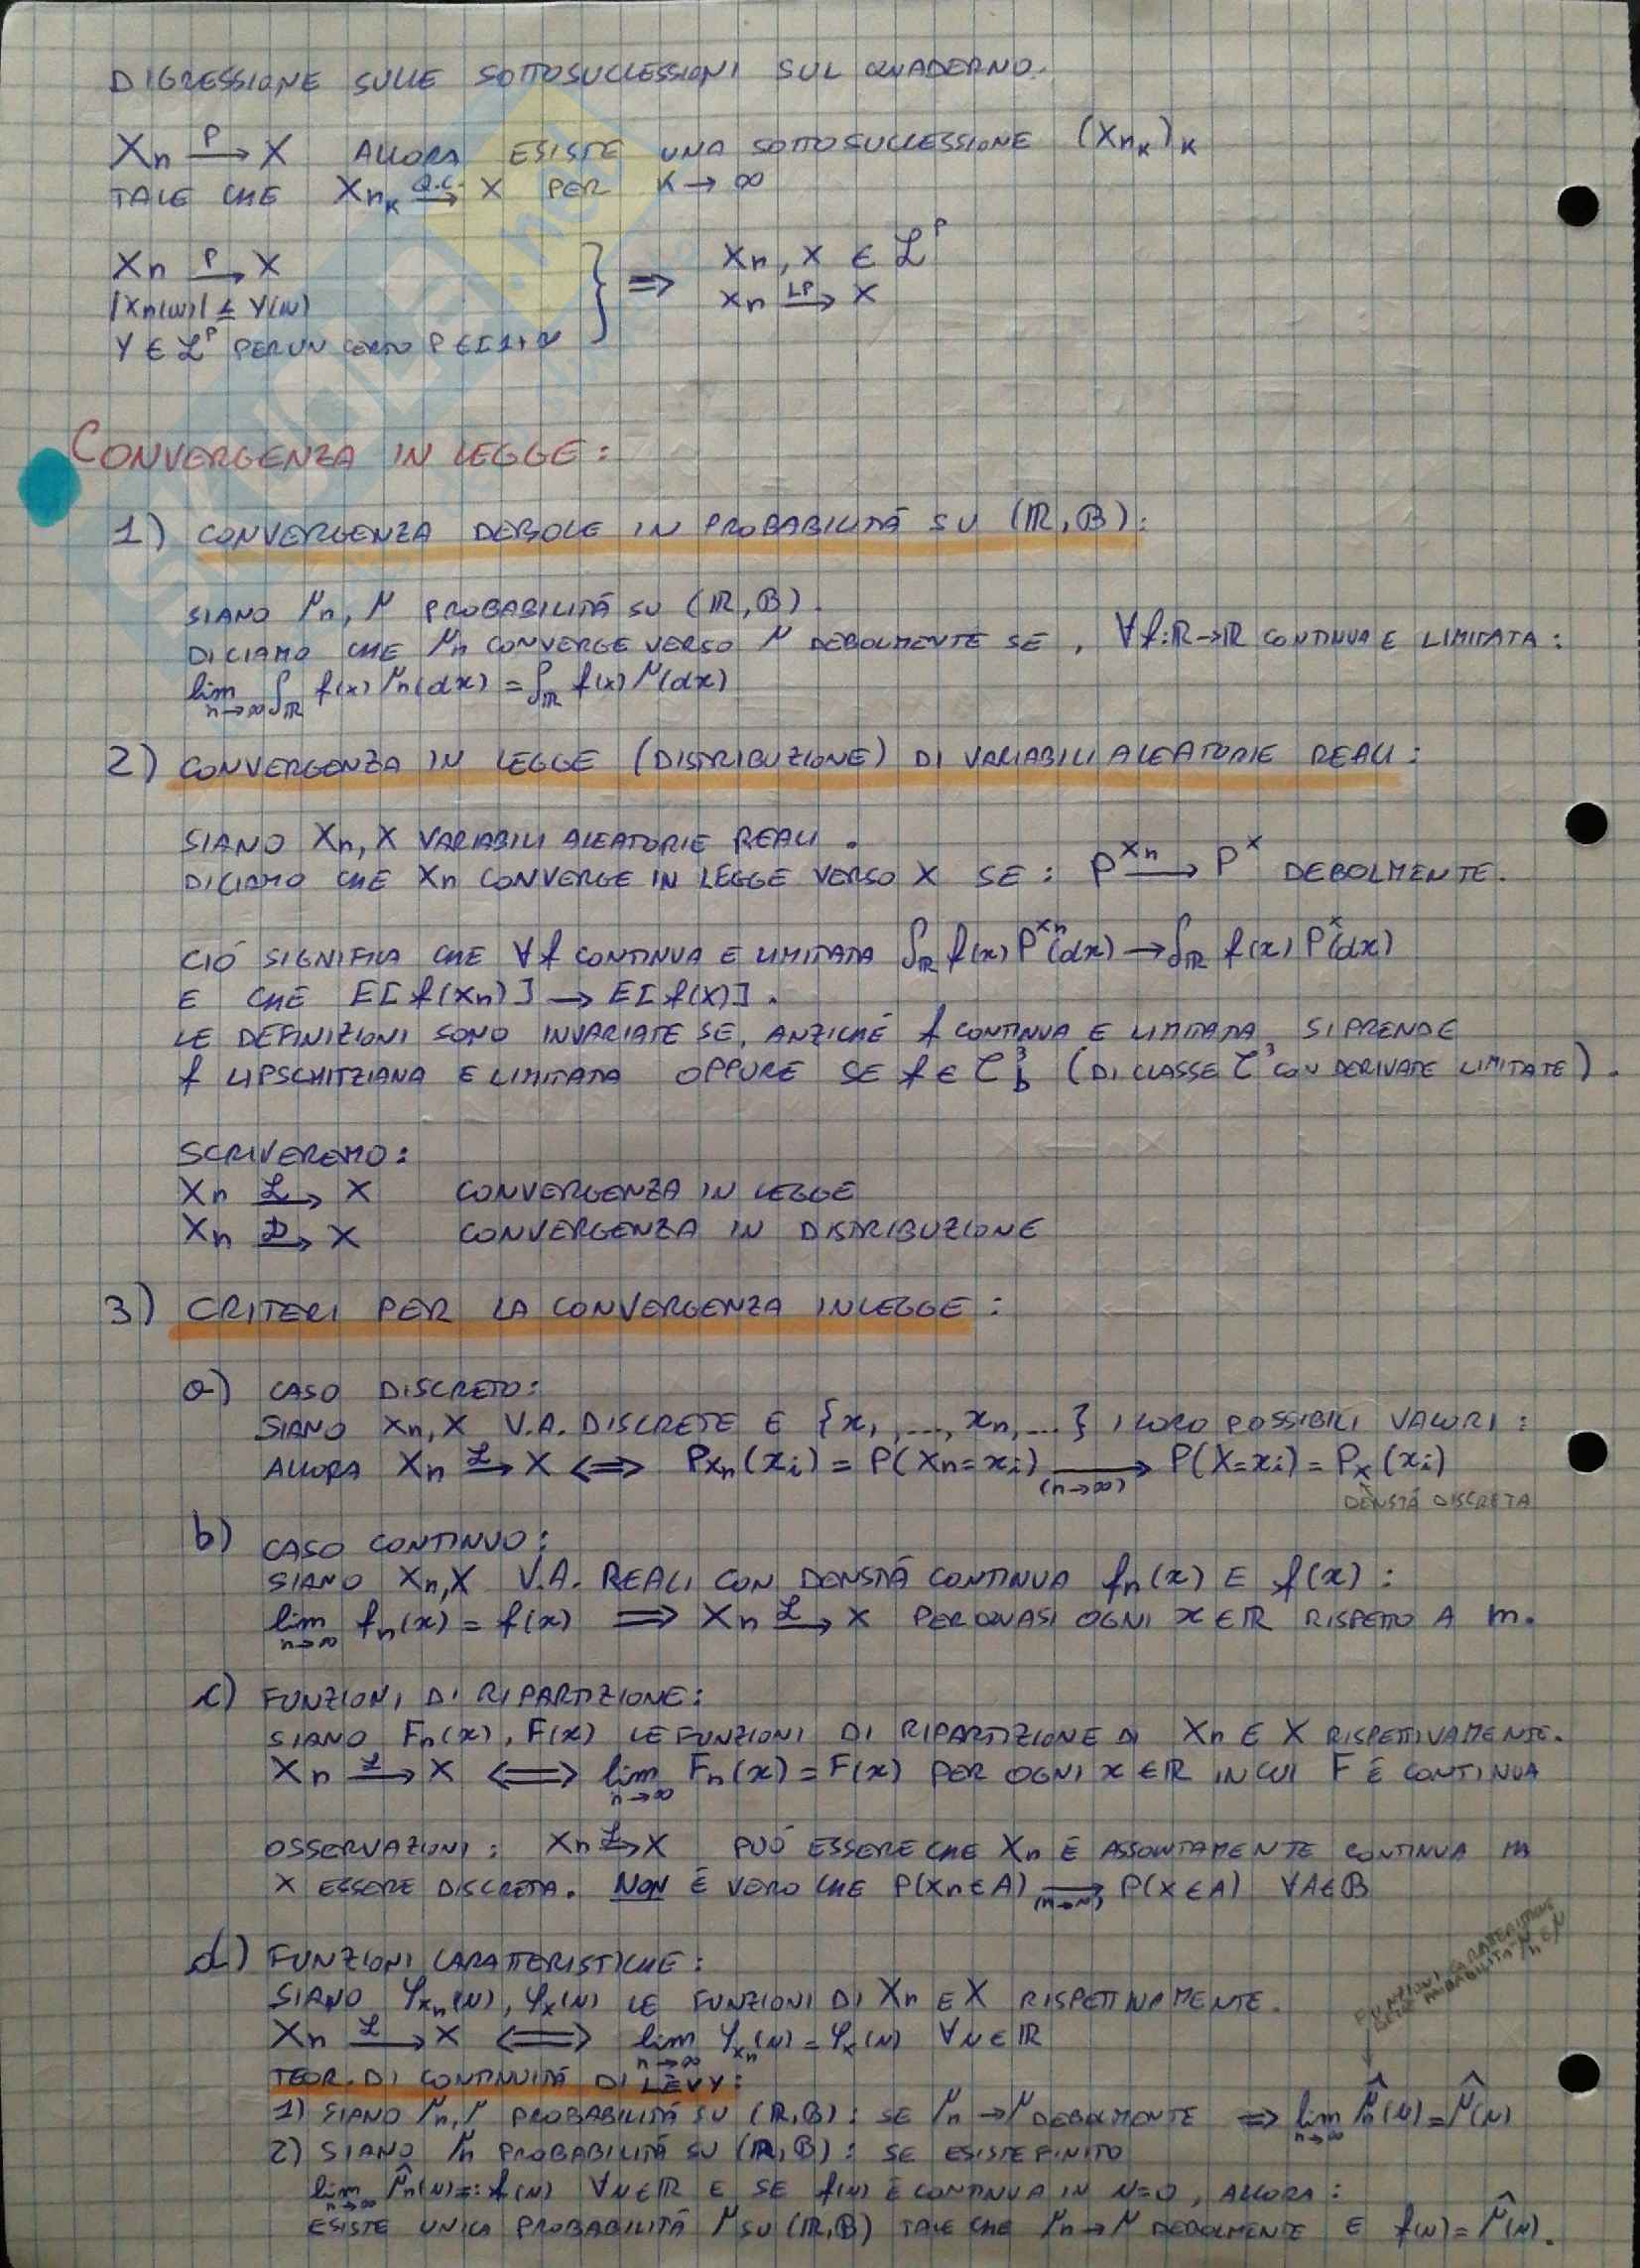 DIGRESSIONE SULLE SOTTOSUCCESSIONI SUL QUADERNO.
Xn →^P X ALLORA ESISTE UNA SOTTOSUCCESSIONE (Xn_K)_K
TALE CHE Xn_K →^{Q.C.} X PER K → ∞
Xn →^P X
|Xn(ω)| ≤ Y(ω)
Y ∈ ℒ^P PER UN CERTO P ∈ [1,+∞
} ⇒ Xn, X ∈ ℒ^P
Xn →^{LP} X
CONVERGENZA IN LEGGE:
1) CONVERGENZA DEBOLE IN PROBABILITÁ SU (ℝ,B):
SIANO μn, μ PROBABILITÁ SU (ℝ,B).
DICIAMO CHE μn CONVERGE VERSO μ DEBOLMENTE SE, ∀f:ℝ→ℝ CONTINUA E LIMITATA:
lim_{n→∞} ∫_ℝ f(x) μn(dx) = ∫_ℝ f(x) μ(dx)
2) CONVERGENZA IN LEGGE (DISTRIBUZIONE) DI VARIABILI ALEATORIE REALI:
SIANO Xn, X VARIABILI ALEATORIE REALI.
DICIAMO CHE Xn CONVERGE IN LEGGE VERSO X SE: P^{Xn} → P^X DEBOLMENTE.
CIÓ SIGNIFICA CHE ∀f CONTINUA E LIMITATA ∫_ℝ f(x) P^{Xn}(dx) → ∫_ℝ f(x) P^X(dx)
E CHE E[f(Xn)] → E[f(X)].
LE DEFINIZIONI SONO INVARIATE SE, ANZICHÉ f CONTINUA E LIMITATA, SI PRENDE
f LIPSCHITZIANA E LIMITATA OPPURE SE f ∈ C_b^3 (DI CLASSE C^3 CON DERIVATE LIMITATE).
SCRIVEREMO:
Xn →^ℒ X CONVERGENZA IN LEGGE
Xn →^𝒟 X CONVERGENZA IN DISTRIBUZIONE
3) CRITERI PER LA CONVERGENZA IN LEGGE:
a) CASO DISCRETO:
SIANO Xn, X V.A. DISCRETE E {x₁,...,xn,...} I LORO POSSIBILI VALORI:
ALLORA Xn →^ℒ X ⟺ P_{Xn}(xi) = P(Xn=xi) →_{(n→∞)} P(X=xi) = P_X(xi)
DENSITÁ DISCRETA
b) CASO CONTINUO:
SIANO Xn,X V.A. REALI CON DENSITÁ CONTINUA fn(x) E f(x):
lim_{n→∞} fn(x) = f(x) ⇒ Xn →^ℒ X PER QUASI OGNI x∈ℝ RISPETTO A m.
c) FUNZIONI DI RIPARTIZIONE:
SIANO Fn(x), F(x) LE FUNZIONI DI RIPARTIZIONE DI Xn E X RISPETTIVAMENTE.
Xn →^ℒ X ⟺ lim_{n→∞} Fn(x) = F(x) PER OGNI x∈ℝ IN CUI F É CONTINUA
OSSERVAZIONI: Xn →^ℒ X PUÓ ESSERE CHE Xn É ASSOLUTAMENTE CONTINUA M
X ESSERE DISCRETA. NON É VERO CHE P(Xn∈A) →_{(n→∞)} P(X∈A) ∀A∈B
d) FUNZIONI CARATTERISTICHE:
SIANO φ_{Xn}(u), φ_X(u) LE FUNZIONI DI Xn E X RISPETTIVAMENTE.
Xn →^ℒ X ⟺ lim_{n→∞} φ_{Xn}(u) = φ_X(u) ∀u∈ℝ
FUNZIONI CARATTERISTICHE
DELLE PROBABILITÁ μn E μ
TEOR. DI CONTINUITÁ DI LÈVY:
1) SIANO μn, μ PROBABILITÁ SU (ℝ,B): SE μn → μ DEBOLMENTE ⇒ lim_{n→∞} μ̂n(u) = μ̂(u)
2) SIANO μn PROBABILITÁ SU (ℝ,B): SE ESISTE FINITO
lim_{n→∞} μ̂n(u) =: f(u) ∀u∈ℝ E SE f(u) É CONTINUA IN u=0, ALLORA:
ESISTE UNICA PROBABILITÁ μ SU (ℝ,B) TALE CHE μn → μ DEBOLMENTE E f(u) = μ̂(u).